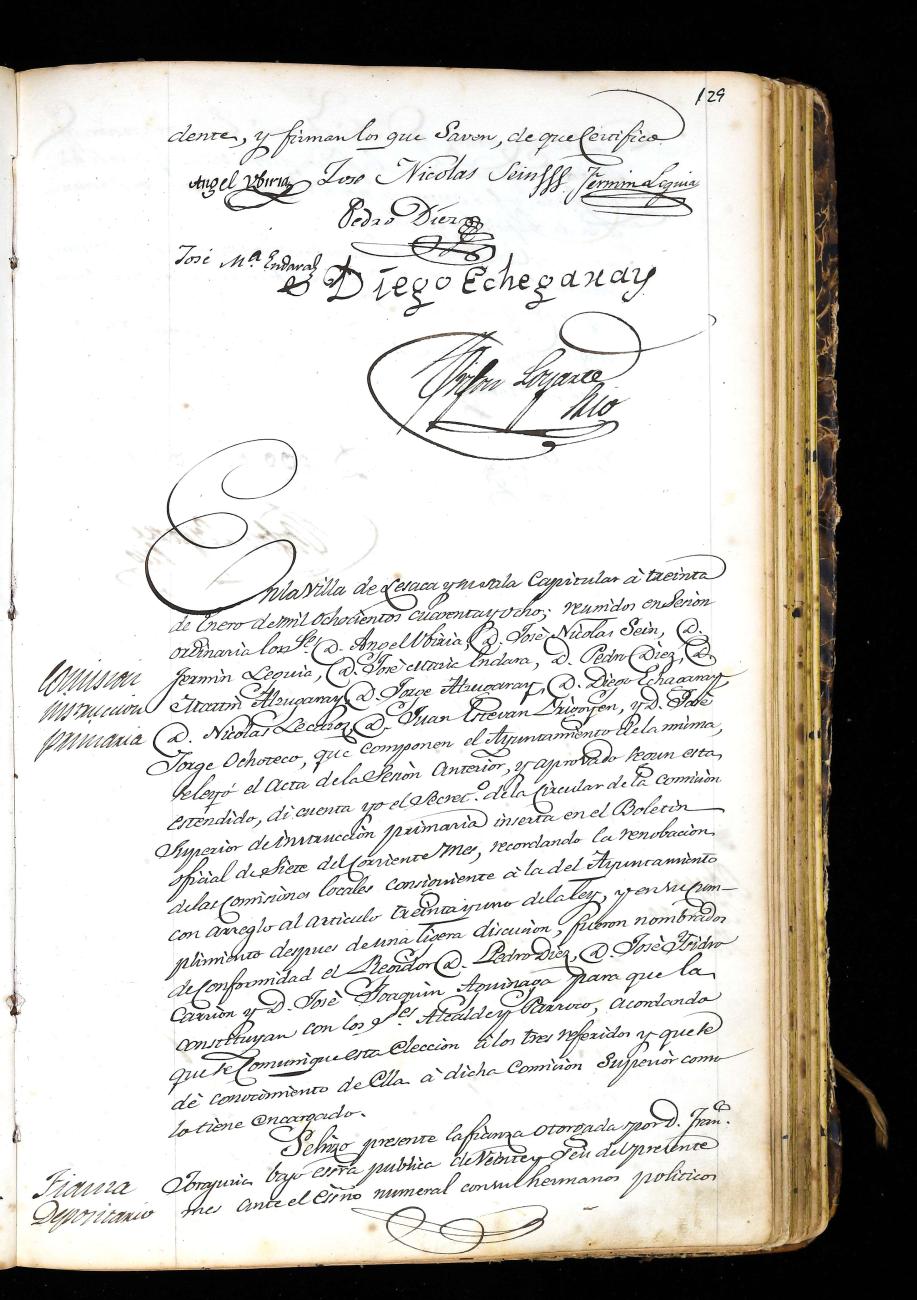 129
dente, y firman los que Saven, de que Certifico
Angel Ubiria José Nicolas Sein Fermin Leguia
Pedro Diez
José Mª. Endara
Diego Echegaray
Loyarte
Srio
En la Villa de Lesaca y su sala Capitular à treinta
de Enero de mil ochocientos cuarenta y ocho; reunidos en Sesion
ordinaria los Sres D. Angel Ubiria, D. José Nicolas Sein, D.
Fermin Leguia, D. José Maria Endara, D. Pedro Diez, D.
Martin Alzugaray, D. Jorge Alzugaray, D. Diego Echagaray
D. Nicolas Lecaroz, D. Juan Estevan Yrigoyen, y D. José
Jorge Ochoteco, que componen el Ayuntamiento de la misma,
se leyó el Acta de la Sesion anterior, y aprovado segun esta
estendido, di cuenta yo el Secreto. de la Circular de la Comision
Superior de instruccion primaria inserta en el Boletin
oficial de Siete del Corriente Mes, recordando la renobacion
de las Comisiones locales consiguiente à la del Ayuntamiento
con arreglo al articulo treinta y uno de la ley, y en su Cum-
plimiento despues de una ligera discusion, fueron nombrados
de Conformidad el Regidor D. Pedro Diez, D. José Ysidro
Carrion y D. José Joaquin Aguinaga para que la
constituyan con los Sres. Alcalde y Parroco, acordando
que se Comunique esta eleccion à los tres referidos y que se
dé conocimiento de Ella à dicha Comision Superior como
lo tiene encargado.
Se hizo presente la fianza otorgada por D. Franco.
bajo essra publica de Veinte y Seis del presente
mes ante el Essno numeral con sus hermanos politicos
Comision
instruccion
primaria
Fianza
Depositario